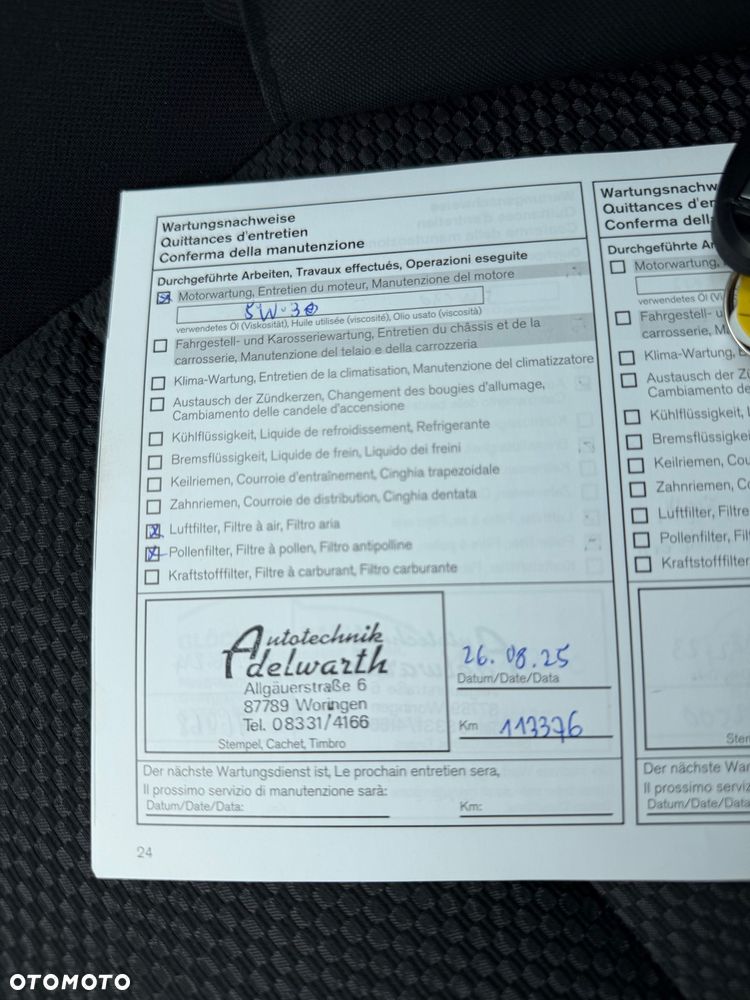 Wartungsnachweise
Quittances d'entretien
Conferma della manutenzione
Durchgeführte Arbeiten, Travaux effectués, Operazioni eseguite
Motorwartung, Entretien du moteur, Manutenzione del motore
5W-30
verwendetes Öl (Viskosität), Huile utilisée (viscosité), Olio usato (viscosità)
Fahrgestell- und Karosseriewartung, Entretien du châssis et de la
carrosserie, Manutenzione del telaio e della carrozzeria
Klima-Wartung, Entretien de la climatisation, Manutenzione del climatizzatore
Austausch der Zündkerzen, Changement des bougies d'allumage,
Cambiamento delle candele d'accensione
Kühlflüssigkeit, Liquide de refroidissement, Refrigerante
Bremsflüssigkeit, Liquide de frein, Liquido dei freini
Keilriemen, Courroie d'entraînement, Cinghia trapezoidale
Zahnriemen, Courroie de distribution, Cinghia dentata
Luftfilter, Filtre à air, Filtro aria
Pollenfilter, Filtre à pollen, Filtro antipolline
Kraftstofffilter, Filtre à carburant, Filtro carburante
Autotechnik
Adelwarth
Allgäuerstraße 6
87789 Woringen
Tel. 08331/4166
Stempel, Cachet, Timbro
26.08.25
Datum/Date/Data
Km 113376
Der nächste Wartungsdienst ist, Le prochain entretien sera,
Il prossimo servizio di manutenzione sarà:
Datum/Date/Data: Km:
24
Wartungsnachw
Quittances d'er
Conferma dell
Durchgeführte Ar
Motorwartung,
verwendetes Öl (Vi
Fahrgestell- u
carrosserie, M
Klima-Wartung, E
Austausch der Z
Cambiamento de
Kühlflüssigkeit, L
Bremsflüssigkei
Keilriemen, Cou
Zahnriemen, Co
Luftfilter, Filtre
Pollenfilter, Fil
Kraftstofffilter
Stem
Der nächste War
Il prossimo serviz
Datum/Date/Data
OTOMOTO